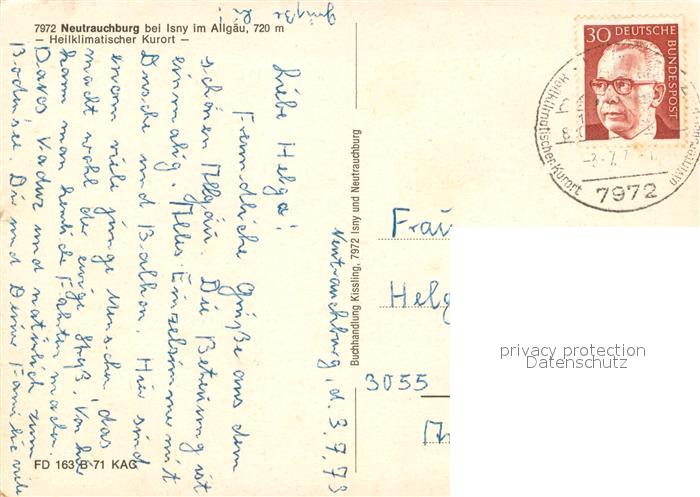 7972 Neutrauchburg bei Isny im Allgäu, 720 m
– Heilklimatischer Kurort –
Neutrauchburg, d. 3.7.73
Liebe Helga!
Freundliche Grüße aus dem
schönen Allgäu. Die Betreuung ist
einmalig. Alles Einzelzimmer mit
Dusche und Balkon. Hier sind
enorm viele junge Menschen, das
macht wohl der ewige Spaß. Von hier
kann man herrliche Fahrten machen.
Davos, Vaduz und natürlich zum
Bodensee. Dir und Deine Familie viele
Grüße
FD 163 B 71 KAG
Buchhandlung Kissling, 7972 Isny und Neutrauchburg
30 DEUTSCHE
BUNDESPOST
Heilklimatischer Kurort
7972
Frau
Helg
3055
privacy protection
Datenschutz